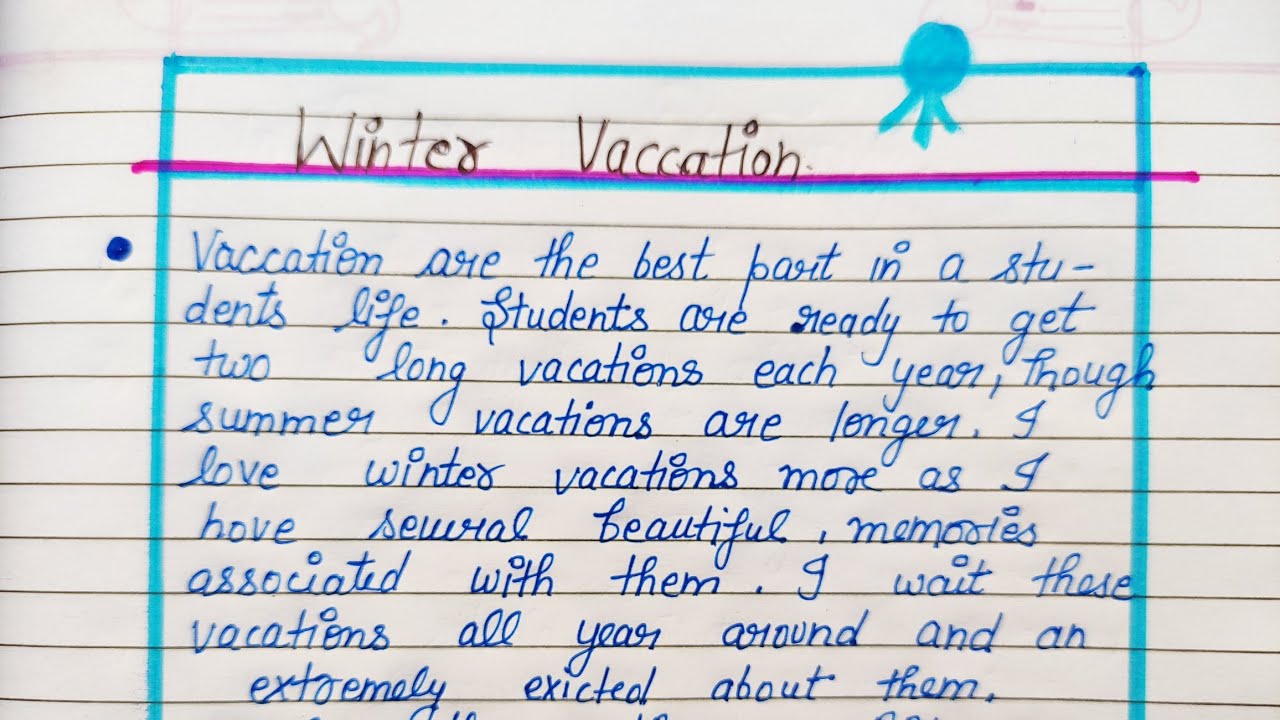 Winter Vaccation.
Vaccation are the best part in a stu-
dents life. Students are ready to get
two long vacations each year, Though
summer vacations are longer. I
love winter vacations more as I
have several beautiful, memories
associated with them. I wait these
vacations all year around and an
extremely exicted about them.